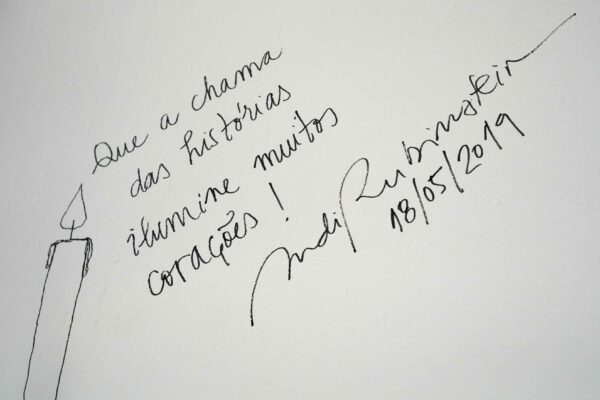 Que a chama
das histórias
ilumine muitos
corações!
Andi Rubinstein
18/05/2019